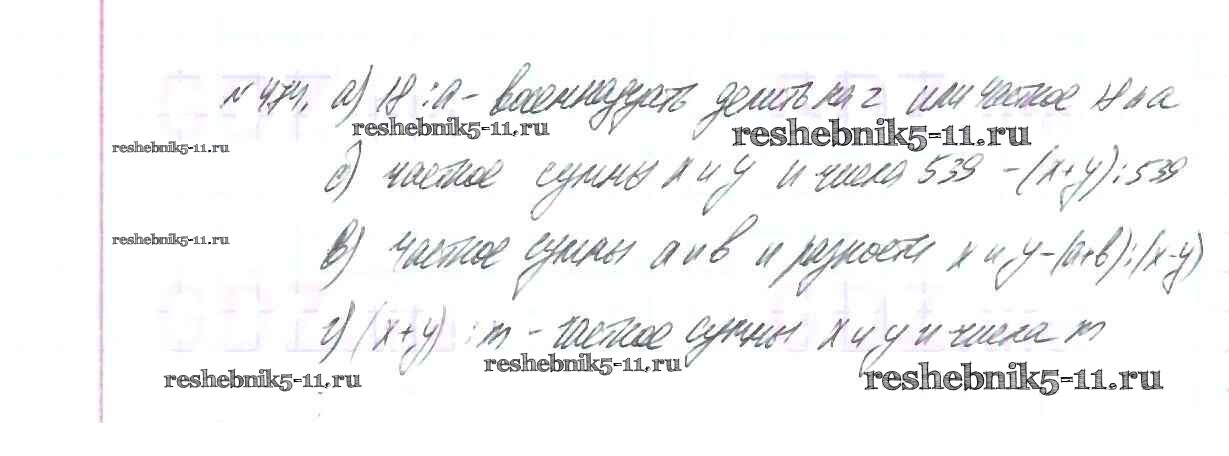 № 474. а) 18 : а - восемнадцать делить на а или частное 18 и а
reshebnik5-11.ru
reshebnik5-11.ru
reshebnik5-11.ru
б) частное суммы х и у и числа 539 - (х+у):539
reshebnik5-11.ru
в) частное суммы а и в и разности х и у - (а+в):(х-у)
г) (х+у) : m - частное суммы х и у и числа m
reshebnik5-11.ru
reshebnik5-11.ru
reshebnik5-11.ru